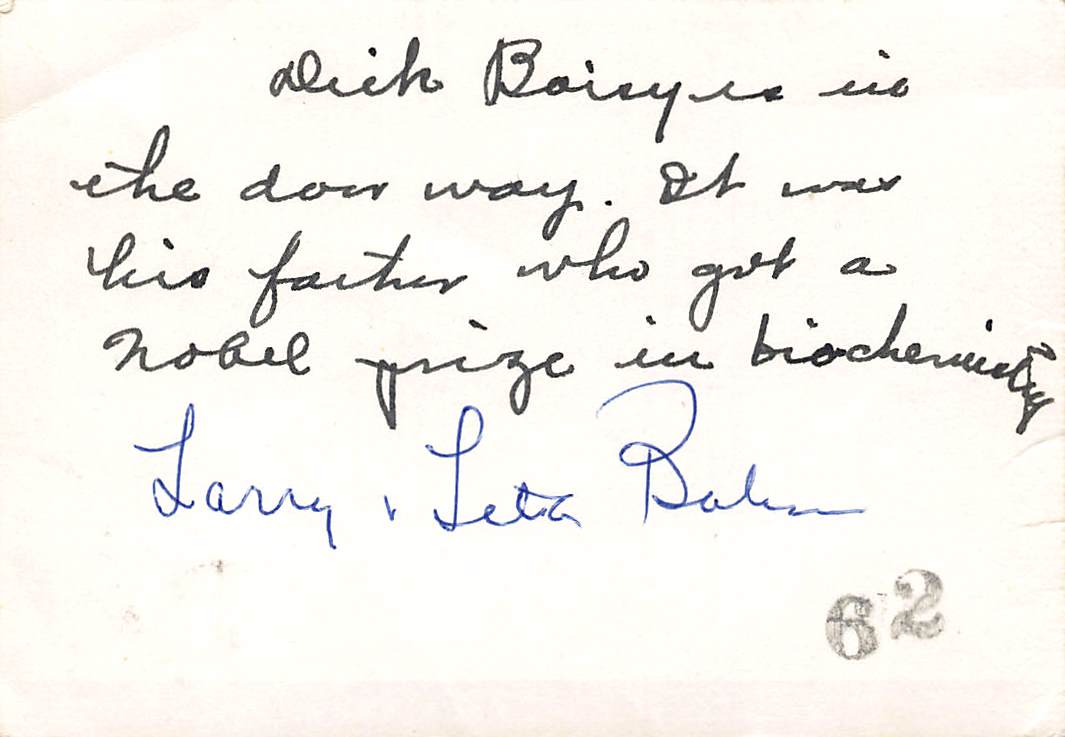 Dick Boisy is in
the door way. It was
his father who got a
Nobel prize in biochemistry
Larry & Leta
62